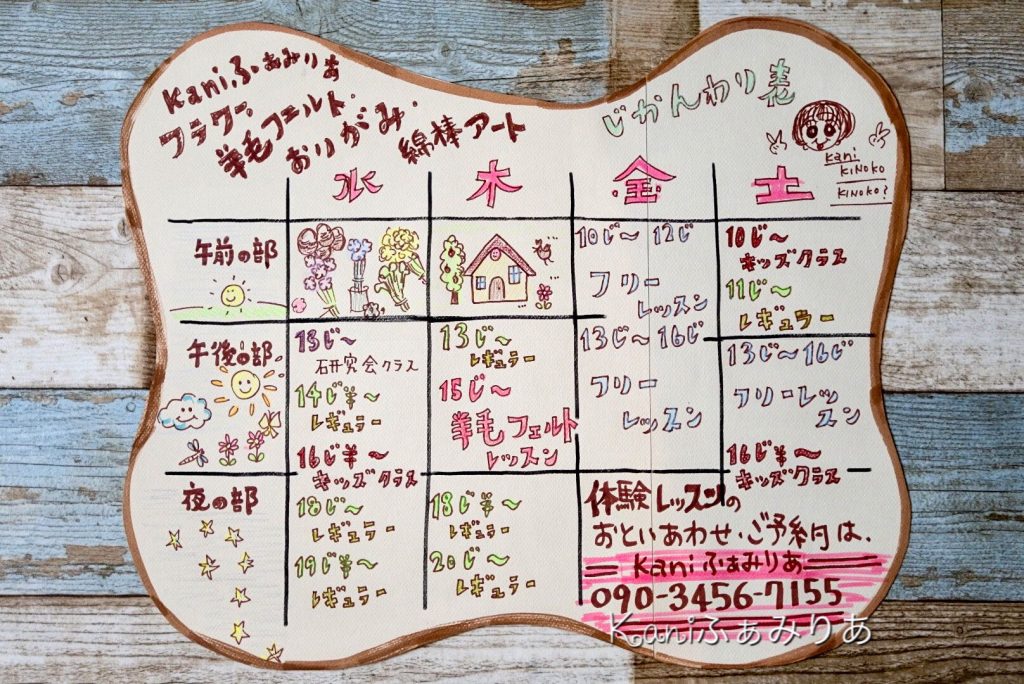 Kaniふぁみりあ
フラワー・
羊毛フェルト・
おりがみ・
綿棒アート
じかんわり表
Kani
KINOKO
KINOKO?
水 木 金 土
午前の部
10じ〜 12じ
フリー
レッスン
10じ〜
キッズクラス
11じ〜
レギュラー
午後の部
13じ〜
研究会クラス
14じ半〜
レギュラー
16じ半〜
キッズクラス
13じ〜
レギュラー
15じ〜
羊毛フェルト
レッスン
13じ〜16じ
フリー
レッスン
13じ〜16じ
フリーレッ
スン
16じ半〜
キッズクラス
夜の部
18じ〜
レギュラー
19じ半〜
レギュラー
18じ半〜
レギュラー
20じ〜
レギュラー
体験レッスンの
おといあわせ・ご予約は、
Kaniふぁみりあ
090-3456-7155
Kaniふぁみりあ